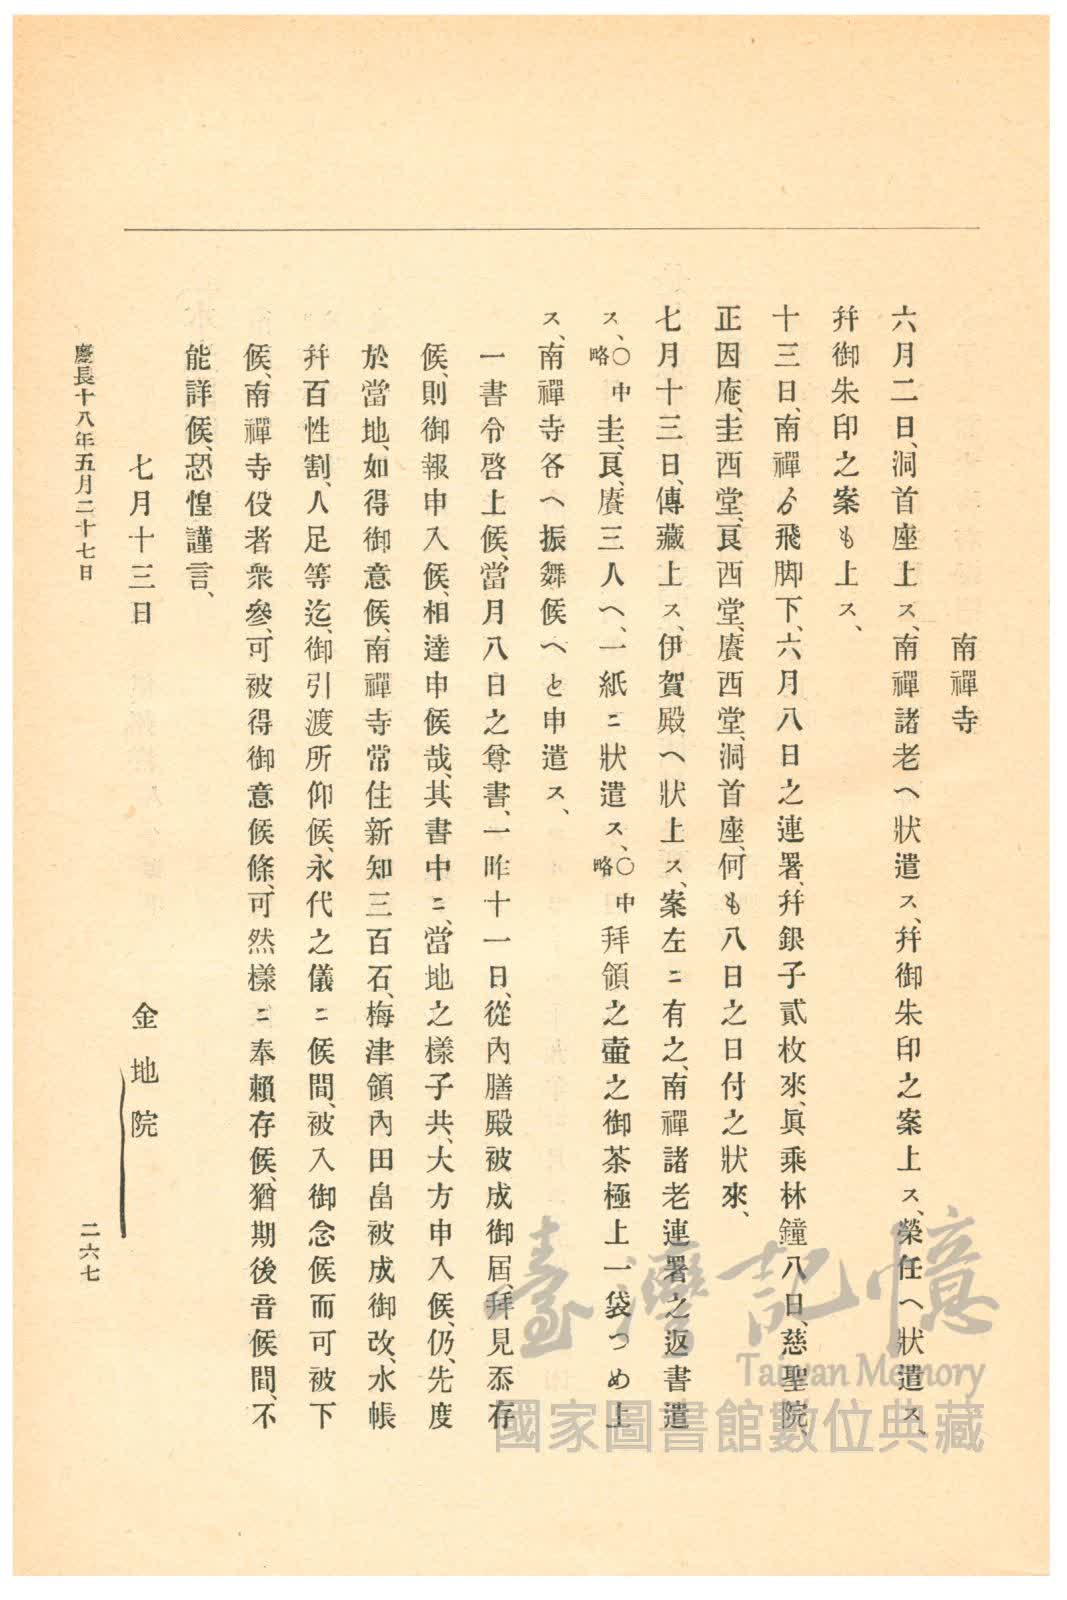 南禪寺
六月二日、洞首座上ス、南禪諸老へ狀遣ス、幷御朱印之案上ス、榮任へ狀遣ス、
幷御朱印之案も上ス、
十三日、南禪ゟ飛脚下、六月八日之連署、幷銀子貳枚來、眞乘林鐘八日、慈聖院、
正因庵、圭西堂、良西堂、賡西堂、洞首座、何も八日之日付之狀來、
七月十三日、傳藏上ス、伊賀殿へ狀上ス、案左ニ有之、南禪諸老連署之返書遣
ス、○中略圭、良、賡三人へ、一紙ニ狀遣ス、○中略拜領之壷之御茶極上一袋つめ上
ス、南禪寺各へ振舞候へと申遣ス、
一書令啓上候、當月八日之尊書、一昨十一日、從內膳殿被成御屆、拜見忝存
候、則御報申入候、相達申候哉、其書中ニ、當地之樣子共、大方申入候、仍、先度
於當地、如得御意候、南禪寺常住新知三百石、梅津領內田畠被成御改、水帳
幷百性割、人足等迄、御引渡所仰候、永代之儀ニ候間、被入御念候而可被下
候、南禪寺役者衆參、可被得御意候條、可然樣ニ奉賴存候、猶期後音候間、不
能詳候、恐惶謹言、
七月十三日　金地院
慶長十八年五月二十七日　二六七
臺灣記憶
Taiwan Memory
國家圖書館數位典藏